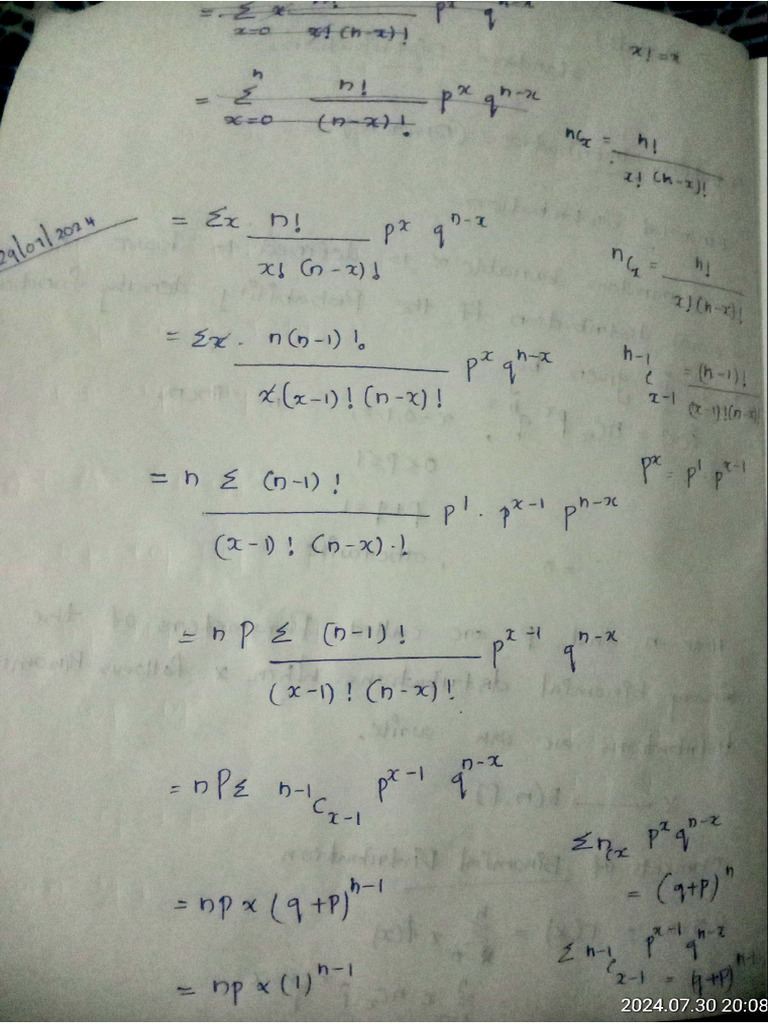 = Σ x n! / x! (n-x)! p^x q^n-x
x=0
x! = x
n
= Σ n! / (n-x)! p^x q^n-x
x=0
nCx = n! / x! (n-x)!
29/07/2024
= Σx n! / x! (n-x)! p^x q^n-x
nCx = n! / x! (n-x)!
= Σx . n(n-1)! / x(x-1)! (n-x)! p^x q^n-x
n-1 C x-1 = (n-1)! / (x-1)! (n-x)!
p^x = p^1 . p^x-1
= n Σ (n-1)! / (x-1)! (n-x).! p^1 . p^x-1 p^n-x
= n P Σ (n-1)! / (x-1)! (n-x)! p^x-1 q^n-x
= n P Σ n-1 C x-1 p^x-1 q^n-x
Σ nCx p^x q^n-x
= (q+p)^n
= np x (q+p)^n-1
Σ n-1 C x-1 p^x-1 q^n-x = (q+p)^n-1
= np x (1)^n-1
2024.07.30 20:08